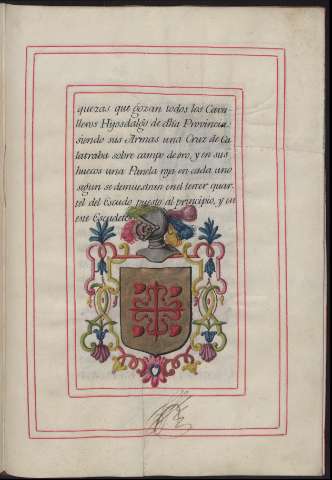 quezas que gozan todos los Cava-
lleros Hijosdalgo de dha Provincia
siendo sus Armas una Cruz de Ca
latraba sobre campo de oro, y en sus
huecos una Panela roja en cada uno
segun se demuestran en el tercer quar-
tel del Escudo puesto al principio, y en
este Escudete